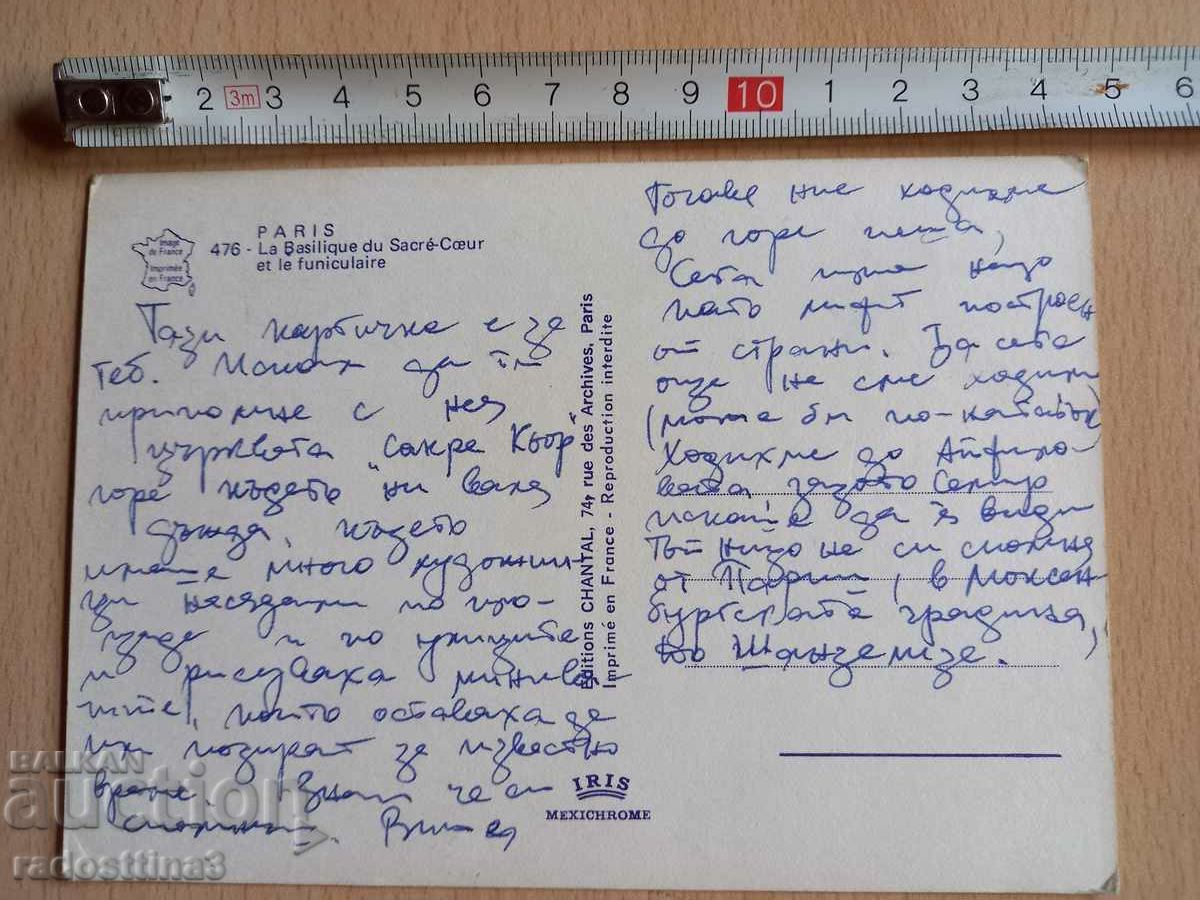 2 3m 3 4 5 6 7 8 9 10 1 2 3 4 5 6
Image
de France
Imprimée
en France
PARIS
476 - La Basilique du Sacré-Cœur
et le funiculaire
Тази картичка е за
теб. Исках да ти
припомня с нея
църквата "Сакре Кьор"
горе където ни валя
дъжда, където
имаше много художни-
ци насядали по пло-
щада и по улиците
и рисуваха минава
щите, които оставаха да
им позират за известно
време. Знам че си
спомняш.
Editions CHANTAL, 74, rue des Archives, Paris
Imprimé en France - Reproduction interdite
Тогава ние ходихме
до горе пеша,
Сега има нещо
като лифт построен
от страни. Та сега
още не сме ходили
(може би по-нататък)
Ходихме до Айфело-
вата защото
искаше да я види
Ти нещо не си спомняш
от Париж, в Люксем
бургската градина,
по Шанзелизе.
IRIS
MEXICHROME
BALKAN
auction
radosttina3